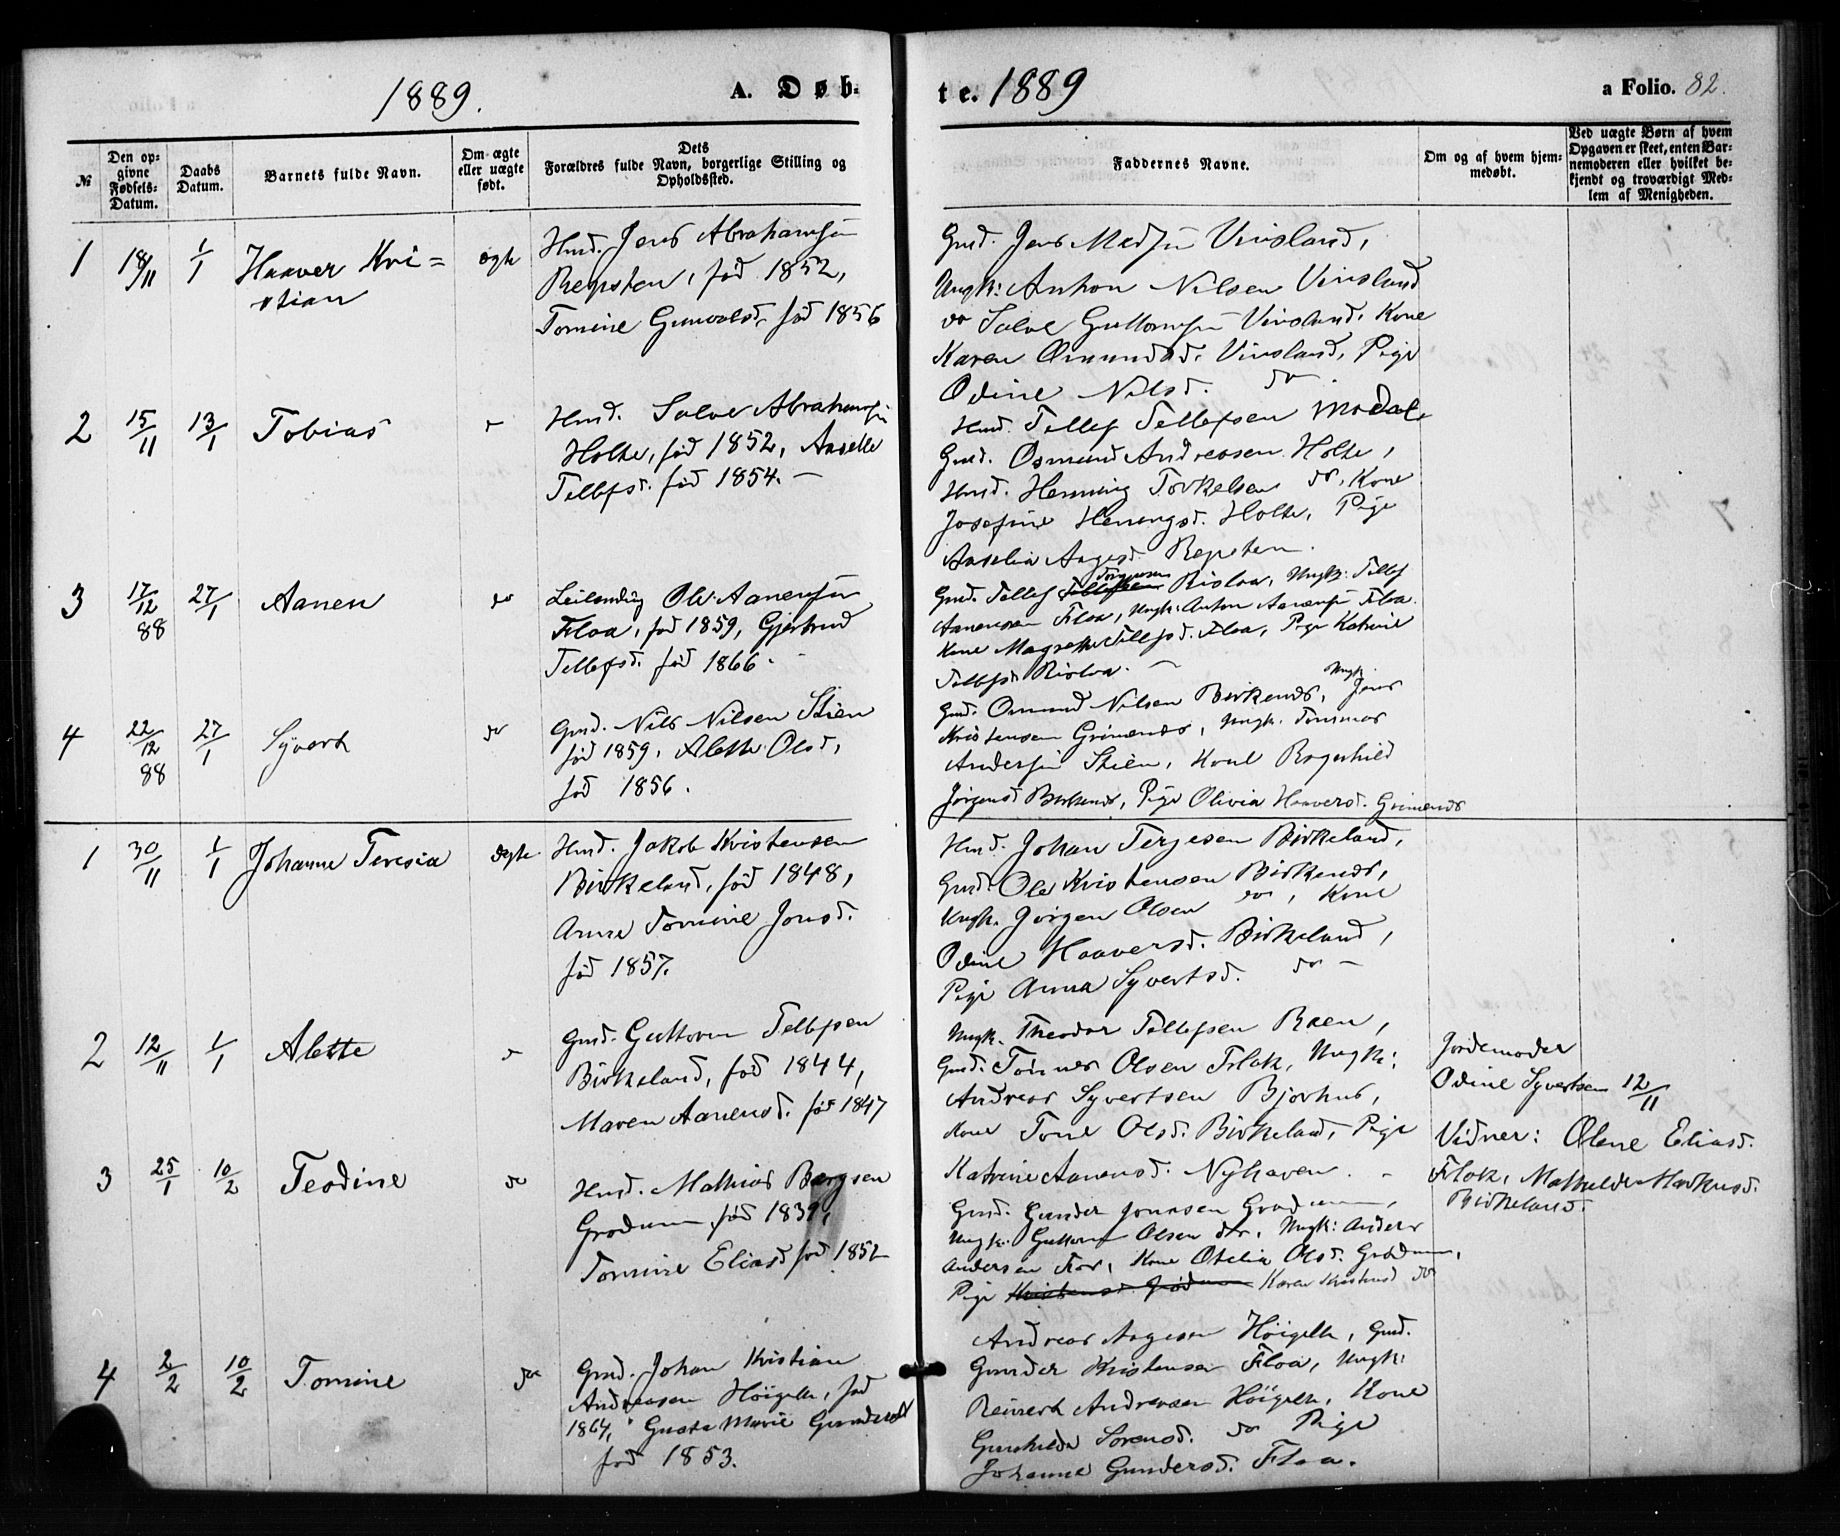 1889. A. Døb-
te. 1889 a Folio. 82.
№
Den op-
givne
Fødsels-
Datum.
Daabs
Datum.
Barnets fulde Navn.
Om ægte
eller uægte
født.
Dets
Forældres fulde Navn, borgerlige Stilling og
Opholdssted.
Faddernes Navne.
Om og af hvem hjem-
medøbt.
Ved uægte Børn af hvem
Opgaven er skeet, enten Bar-
nemoderen eller hvilket be-
kjendt og troværdigt Med-
lem af Menigheden.
1 18/11 1/1 Haaver Kri=
stian
ægte
Hmd. Jens Abrahamsen
Repsten, fød 1852,
Tomine Gunvalsd. fød 1856
Gmd. Jens Madsen Vinsland,
Ungk: Anton Nilsen Vinsland
do Salve Guttormsen Vinsland. Kone
Karen Omundsd. Vinsland, Pige
Odine Nilsd. do
2 15/11 13/1 Tobias
Hmd. Salve Abrahamsen
Holte, fød 1852, Aaselle
Tellefsd. fød 1854. —
Hmd. Tellef Tellefsen Modal
Gmd. Osmund Andreasen Holte,
Hmd. Henning Torkelsen do, Kone
Josefine Heningsd. Holte, Pige
Aaselia Aagesd. Repsten.
3 17/12 88 27/1 Aanen do
Leilending Ole Aanensen
Floa, fød 1859, Gjertrud
Tellefsd. fød 1866.
Gmd. Tellef Risloa, Ungk: Tellef
Aanensen Floa, Ungk: Anton Aanensen Floa.
Kone Magrethe Tellefsd. Floa, Pige Katrine
Tellefsd. Risloa.
4 22/12 88 27/1 Syvert do
Gmd. Nils Nilsen Stien
fød 1859, Alette Olsd,
fød 1856.
Gmd. Omund Nilsen Birkenes, Ungk. Jens
Kristensen Grimenes, Ungk. Tommas
Andersen Stien, Kone Ragnhild
Jørgensd Birkenes, Pige Olivia Haaversd. Grimenes
1 30/11 1/1 Johanne Teresia ægte
Hmd. Jakob Kristensen
Birkeland, fød 1848,
Anne Tomine Jensd.
fød 1857.
Hmd. Johan Terjesen Birkeland,
Gmd. Ole Kristensen Birkenes,
Ungk. Jørgen Olsen do, Kone
Odine Haaversd. Birkeland,
Pige Anna Syvertsd. do —
2 12/11 1/1 Alette
Gmd. Guttorm Tellefsen
Birkeland, fød 1844,
Maren Aanensd. fød 1847
Ungk. Theodor Tellefsen Røen,
Gmd. Tønnes Olsen Flak, Ungk:
Andreas Syvertsen Bjorhus,
Kone Tone Olsd. Birkeland, Pige
Katrine Aanensd. Nyhaven. -
Jordemoder
Odine Syvertsen 12/11
Vidner: Olene Eliasd.
Flak, Mathilde Markusd.
Birkeland.
3 25/1 10/2 Teodine do
Hmd. Mathias Bergsen
Grødum, fød 1839,
Tomine Eliasd fød 1852
Gmd. Gunder Jensen Grødum,
Ungk. Guttorm Olsen do, Ungk: Anders
Andersen Flaa, Kone Otelia Olsd. Grødum,
Pige Karen Kristensd do
4 2/2 10/2 Tomine do
Gmd. Johan Kristian
Andreassen Höigelte, fød
1864, Gusta Marie Gundersd
fød 1853.
Andreas Aagesen Höigelte, Gmd.
Gunder Kristensen Floa, Ungk:
Reinert Andreasen Höigelte, Kone
Gunhilda Sørensd. do Pige
Johanne Gundersd. Floa.